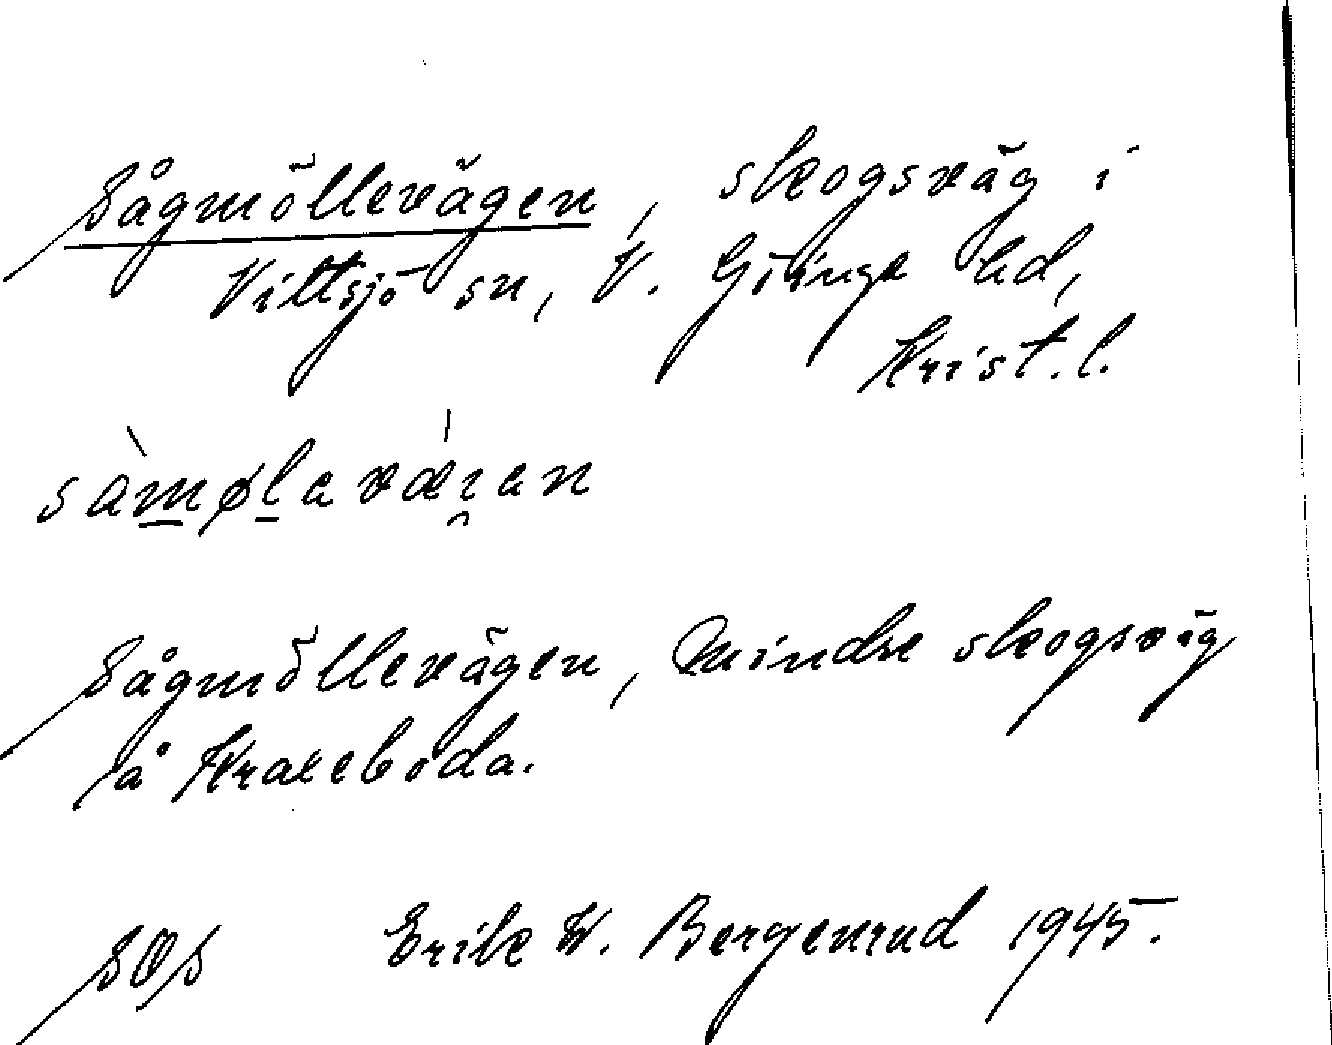 Sågmöllevägen, skogsväg i
Vittsjö sn, V. Göinge hd,
Krist. l.
sàmølavǽɿan
Sågmöllevägen, Mindre skogsväg
å Kraxeboda.
SOS Erik W. Bergenrud 1945.